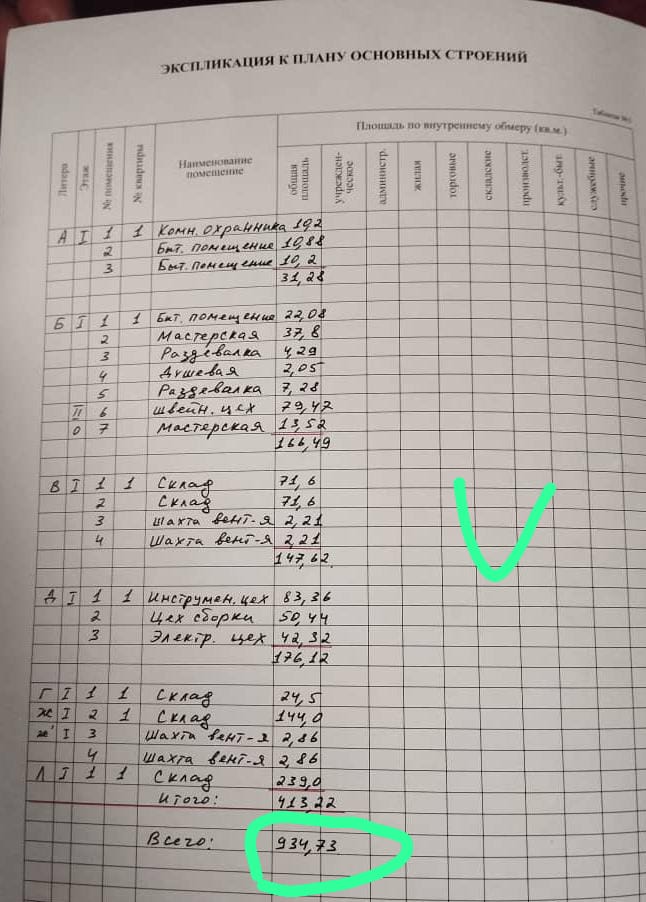 ЭКСПЛИКАЦИЯ К ПЛАНУ ОСНОВНЫХ СТРОЕНИЙ
Таблица №1
Литера Этаж № помещения № квартиры Наименование помещение Площадь по внутреннему обмеру (кв.м.)
общая площадь учрежден-ческое администр. жилая торговые складские производст. культ.-быт. служебные прочие
А I 1 1 Комн. охранника 10,2
2 Быт. помещение 10,88
3 Быт. помещение 10,2
31,28
Б I 1 1 Быт. помещение 22,08
2 Мастерская 37,8
3 Раздевалка 4,29
4 Душевая 2,05
5 Раздевалка 7,28
II 6 швейн. цех 79,47
0 7 Мастерская 13,52
166,49
В I 1 1 Склад 71,6
2 Склад 71,6
3 шахта вент-я 2,21
4 Шахта вент-я 2,21
147,62
Д I 1 1 Инструмен. цех 83,36
2 Цех сборки 50,44
3 Электр. цех 42,32
176,12
Г I 1 1 Склад 24,5
ж I 2 1 Склад 144,0
ж' I 3 Шахта вент-я 2,86
4 Шахта вент-я 2,86
Л I 1 1 Склад 239,0
итого: 413,22
Всего: 934,73